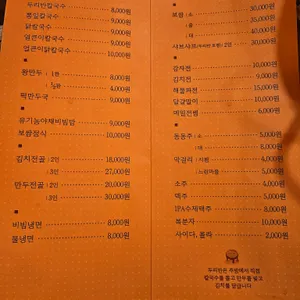 두리반칼국수 8,000원
통밀칼국수 8,000원
닭칼국수 9,000원
얼큰이칼국수 9,000원
얼큰이닭칼국수 10,000원
왕만두 : 1판 8,000원
½판 4,000원
떡만두국 9,000원
유기농야채비빔밥 9,000원
보쌈정식 10,000원
김치전골 : 2인 18,000원
: 3인 27,000원
만두전골 : 2인 20,000원
: 3인 30,000원
비빔냉면 8,000원
물냉면 8,000원
보쌈 : 소 30,000원
: 중 35,000원
: 대 40,000원
2인 30,000원
감자전 10,000원
김치전 9,000원
해물파전 15,000원
메밀전병 6,000원
동동주 : 소 5,000원
: 대 8,000원
막걸리 4,000원
소주 4,000원
맥주 5,000원
IPA수제맥주 8,000원
복분자 10,000원
사이다, 콜라 2,000원
두리반은 주방에서 직접
칼국수를 뽑고 만두를 빚고
김치를 담급니다